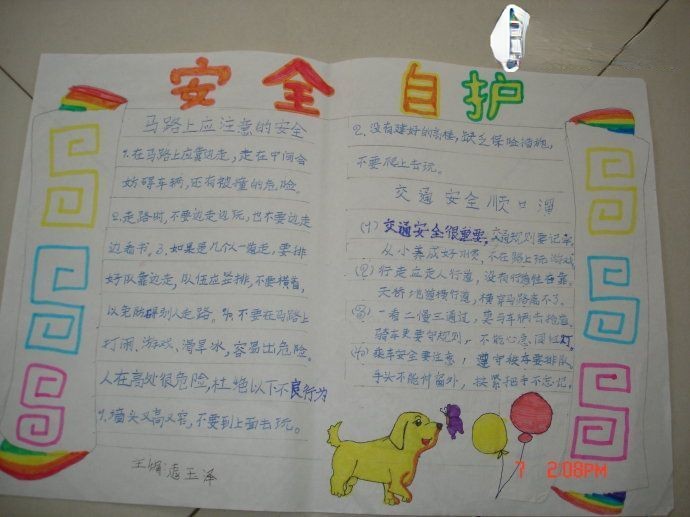 安全自护
马路上应注意的安全
1.在马路上应靠边走,走在中间会
妨碍车辆,还有被撞的危险。
2.走路时,不要边走边玩,也不要边走
边看书。3.如果是几个人一道走,要排
好队靠边走,队伍应竖排,不要横着,
以免妨碍别人走路。4.不要在马路上
打闹、游戏、滑旱冰,容易出危险。
人在高处很危险,杜绝以下不良行为
1.墙头又高又窄,不要到上面去玩。
王
玉泽
2.没有建好的高楼,缺乏保险措施,
不要爬上去玩。
交通安全顺口溜
(1)交通安全很重要,交通规则要记牢,
从小养成好习惯,不在路上玩游戏。
(2)行走应走人行道,没有行道往右靠,
天桥地道横行道,横穿马路离不了。
(3)一看二慢三通过,莫与车辆去抢道。
骑车更要守规则,不能心急闯红灯。
(4)乘车安全要注意,遵守乘车要排队,
手头不能伸窗外,扶紧把手不忘记。
7 2:08PM